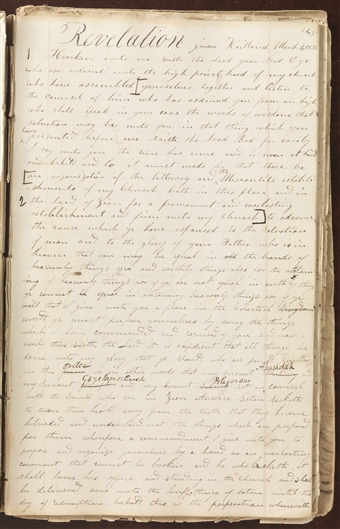 149
Revelation given Kirtland March 1, 1832
1 Hearken unto me saith the Lord your God O ye
who are ordained unto the high priesthood of my church
who have assembled [yourselves together and listen to
the council of him who has ordained you from on high
who shall speak in your ears the words of wisdom that
salvation may be unto you in that thing which you have
presented before me saith the Lord God for verily
I say unto you the time has come and is now at hand
and behold and lo it must needs be that there be
[an organization of the literary and Mercantile establi-
shments of my Church both in this place and in
2 the Land of Zion for a permanent and everlasting
establishment and firm unto my church] to advance
the cause which ye have espoused to the salvation
of man and to the glory of your Father who is in
heaven that you may be equal in the bands of
heavenly things yea and earthly things also for the obtain-
ing of heavenly things for if ye are not equal in earthly things
ye cannot be equal in obtaining heavenly things for if ye
will that I give unto you a place in the Celestial
world ye must prepare yourselves by doing the things
which I have commanded and required of you
saith the Lord it is expedient that all things be
done unto my glory that ye should who are joined together
in this order or in other words that my servant Ahashdah
and my servant Gazelam and my servant Pelagoram sit in council
with the Saints in Zion otherwise Satan seeketh
to turn their hearts away from the truth that they become
blinded and understand not the things which are prepared
for them wherefore a commandment I give unto you to
prepare and organize yourselves by a bond or an everlasting
covenant that cannot be broken and he who breaketh it
shall loose his office and standing in the church and shall
be delivered over unto the buffetings of Satan until the
day of redemption behold this is the preparation wherewith